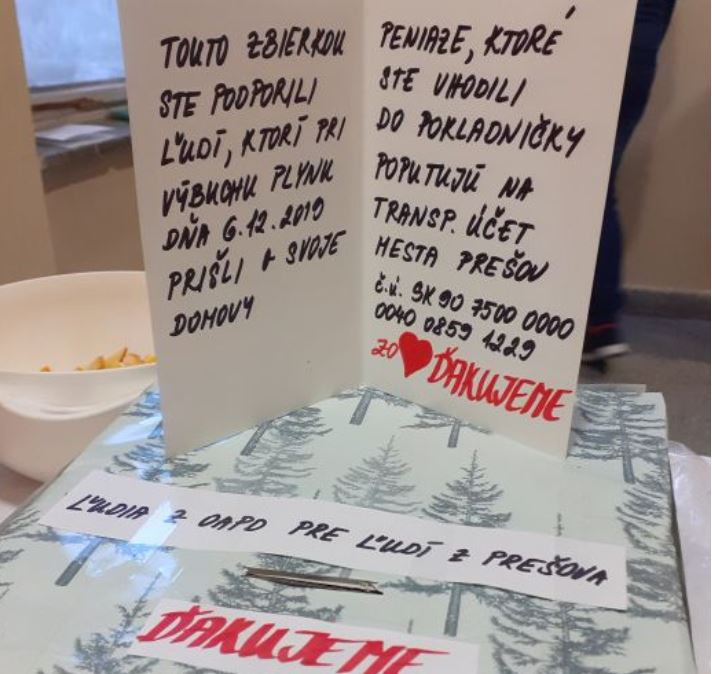 TOUTO ZBIERKOU
STE PODPORILI
ĽUDÍ, KTORÍ PRI
VÝBUCHU PLYNU
DŇA 6.12.2019
PRIŠLI O SVOJE
DOMOVY
PENIAZE, KTORÉ
STE VHODILI
DO POKLADNIČKY
POPUTUJÚ NA
TRANSP. ÚČET
MESTA PREŠOV
č.ú. SK 90 7500 0000
0040 0859 1229
ZO ❤ ĎAKUJEME
ĽUDIA Z OAPD PRE ĽUDÍ Z PREŠOVA
ĎAKUJEME